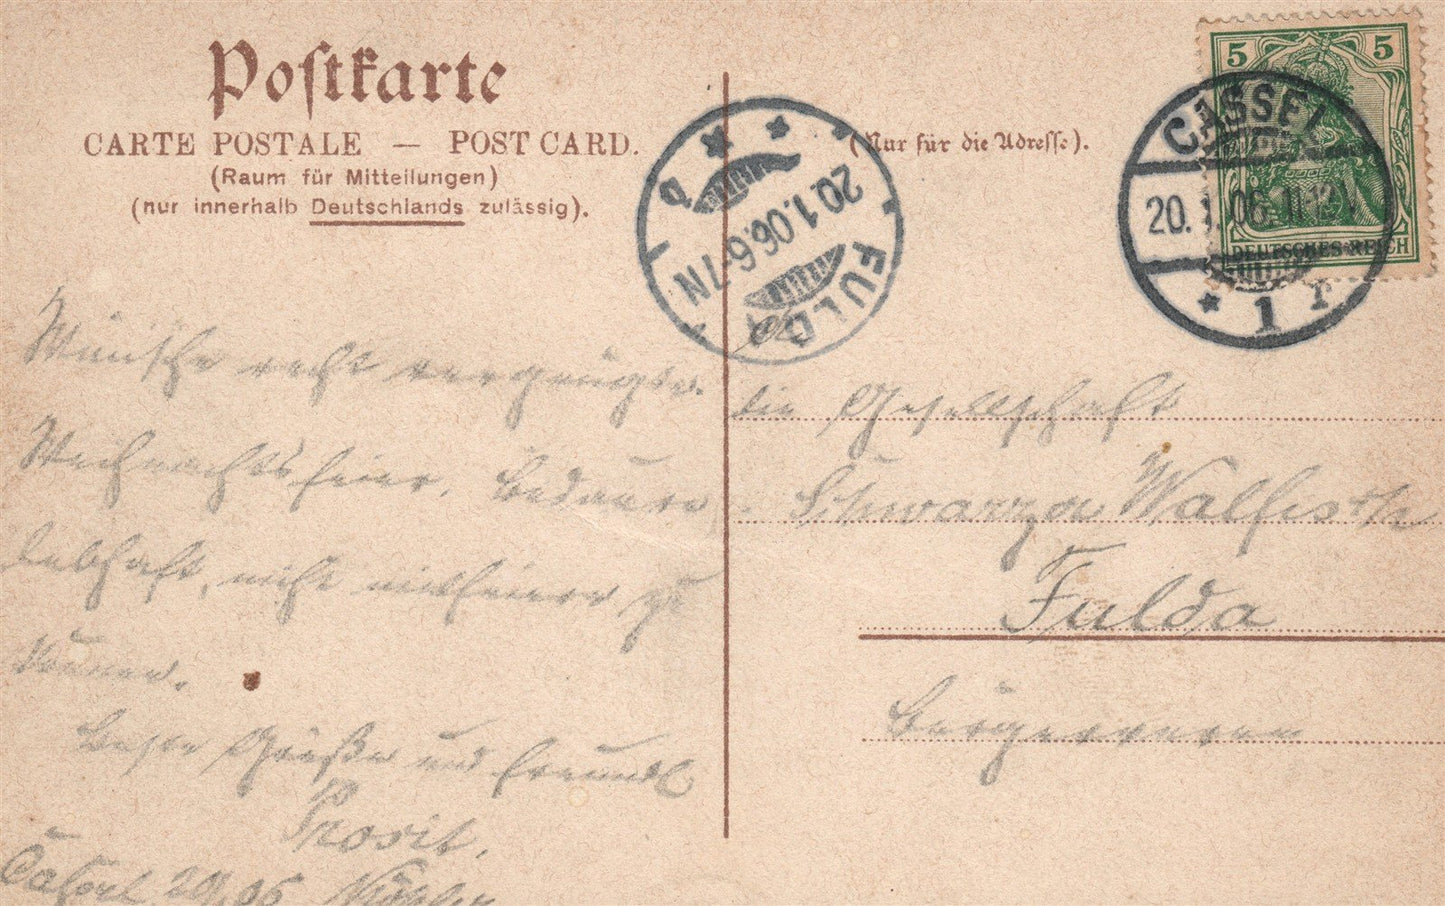 Postkarte
CARTE POSTALE — POST CARD.
(Raum für Mitteilungen)
(nur innerhalb Deutschlands zulässig).
(Nur für die Adresse).
5 5
DEUTSCHES REICH
CASSEL
20. 1. 06. 11-12
* 1 r
FULDA
20.1.06.6-7N
Wünsche recht vergnügte
Weihnachtsfeier. Bedaure
lebhaft, nicht mitfeiern zu
können.
Beste Grüße und freundl
Prosit.
Cassel 20/1 06
die Gesellschaft
Schwarzer Walfisch
Fulda
Bürgerverein